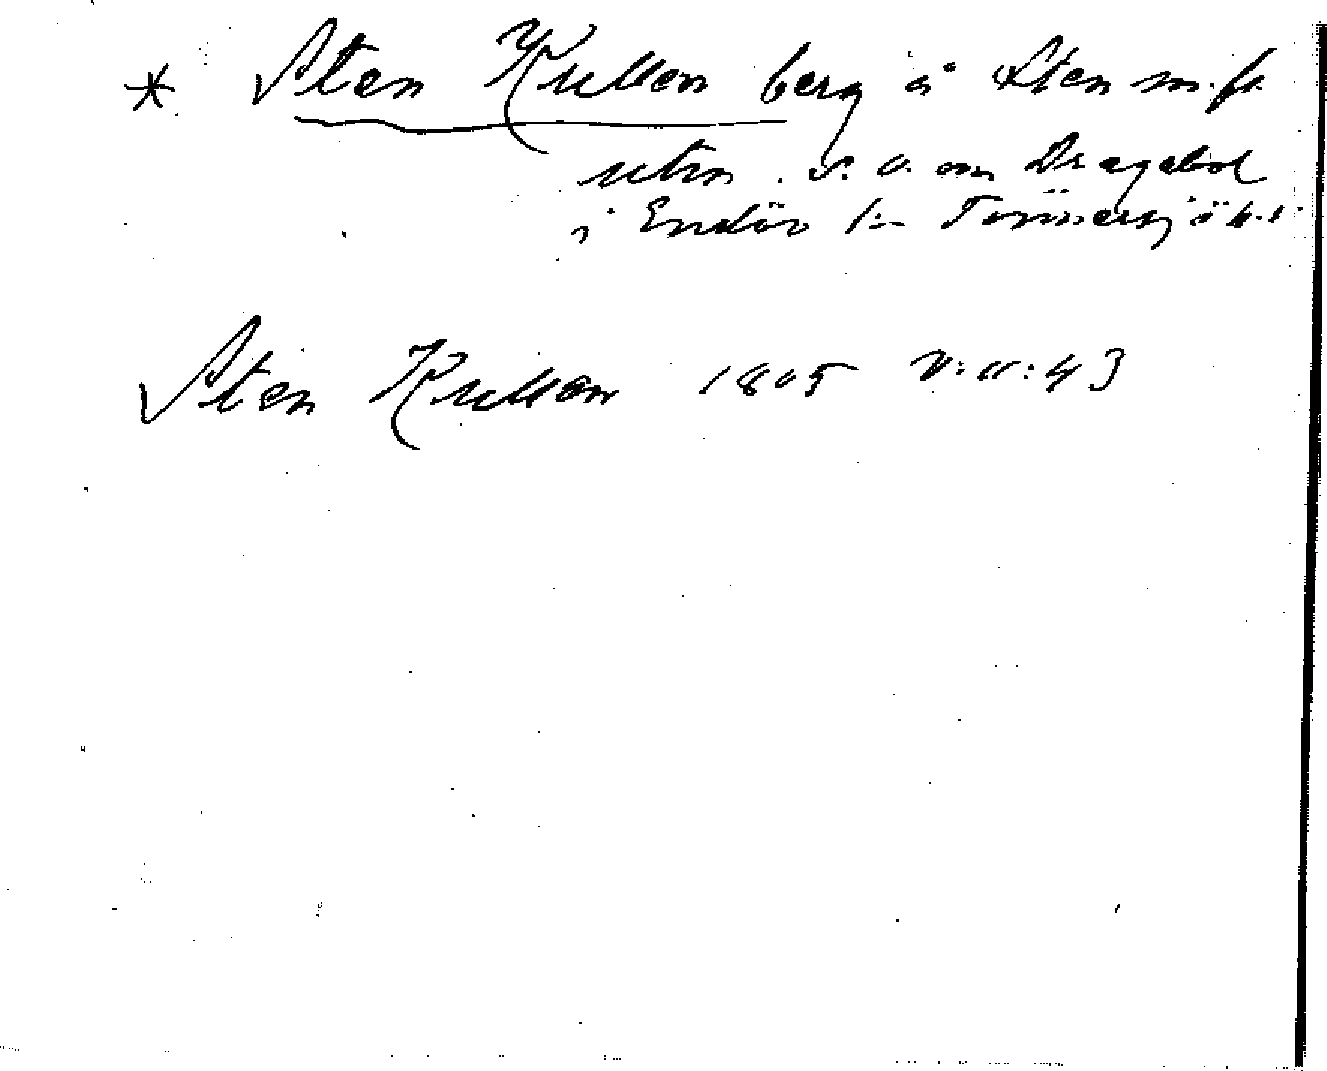 * Sten Kullen berg å Sten m.fl.
utm. s. o. om Dragabol
i Enslöv Tönnersjö h.d.
Sten Kullen 1805 V:II:43